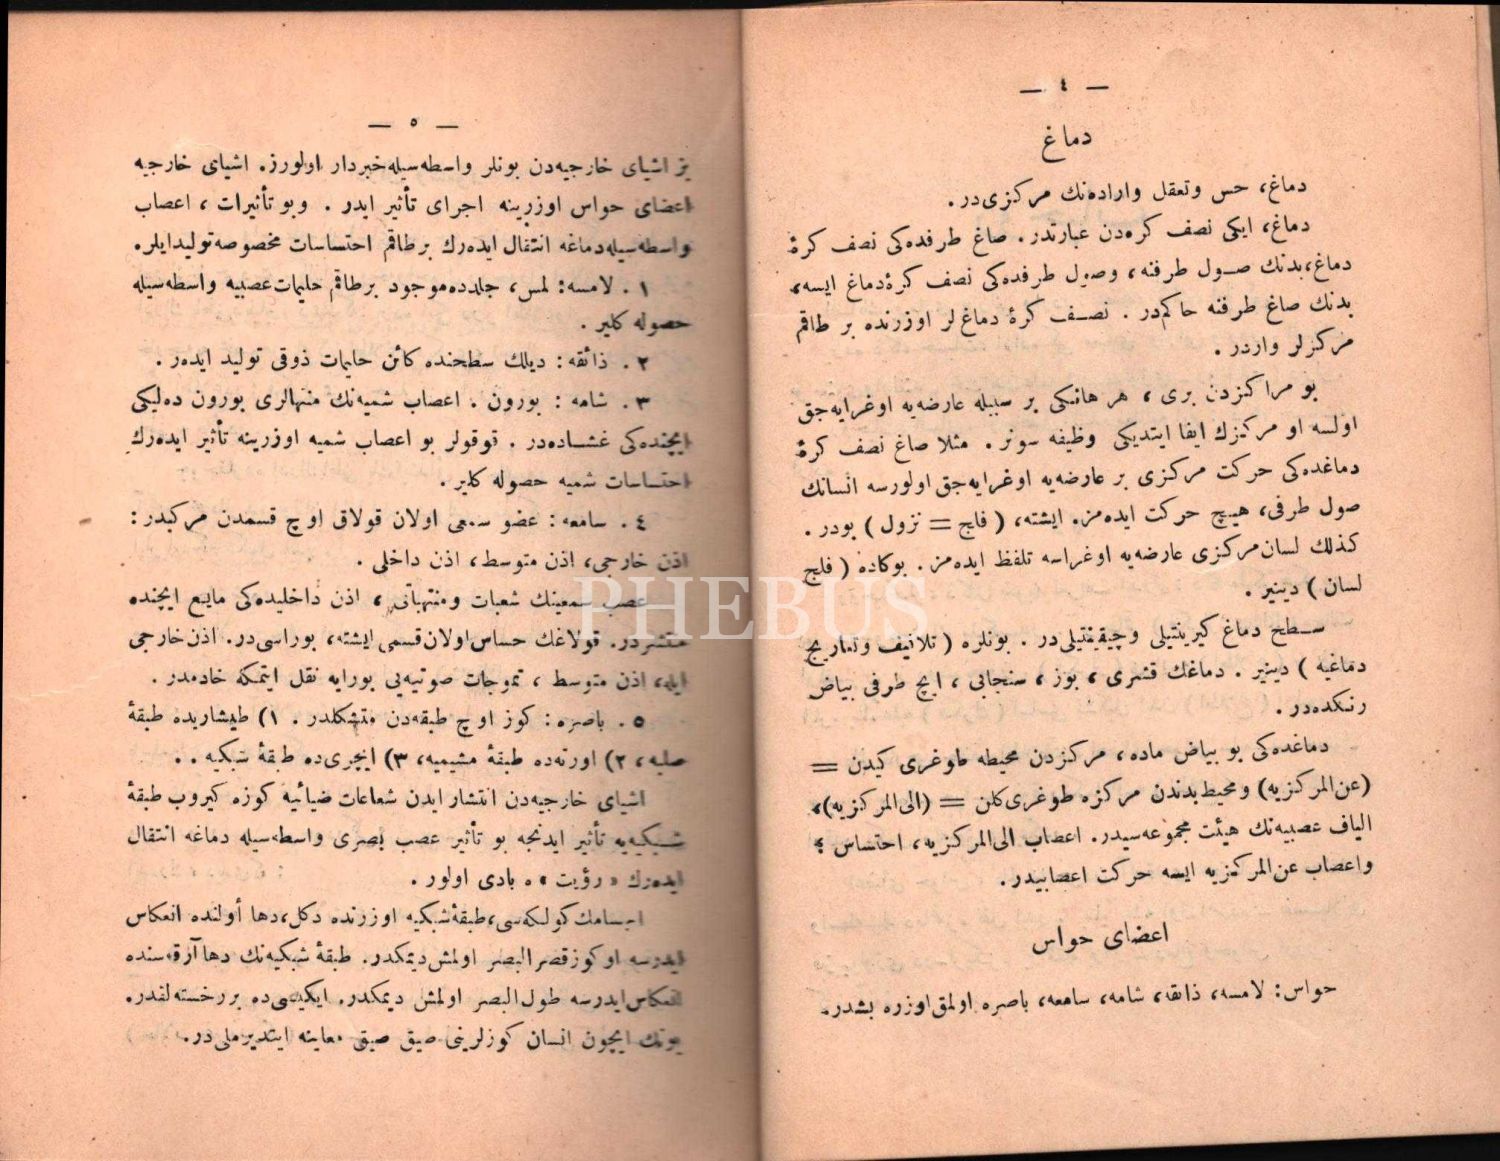 — ٤ —
دماغ
دماغ، حس وتعقل وارادەنك مركزی‌در.
دماغ، ایكی نصف كره‌دن عبارتدر. صاغ طرفده‌كی نصف كرۀ
دماغ، بدنك صـول طرفنه، وصول طرفده‌كی نصف كرۀ دماغ ایسه،
بدنك صاغ طرفنه حاكم‌در. نصـف كرۀ دماغ‌لر اوزرنده بر طاقم
مركزلر واردر.
بو مراكزدن بری، هر هانكی بر سببله عارضه‌یه اوغرایه‌جق
اولسه او مركزك ایفا ایتدیكی وظیفه سونر. مثلا صاغ نصف كرۀ
دماغده‌كی حركت مركزی بر عارضه‌یه اوغرایه‌جق اولورسه انسانك
صول طرفی، هیچ حركت ایده‌مز. ایشته، (فالج = نزول) بودر.
كذلك لسان مركزی عارضه‌یه اوغراسه تلفظ ایده‌مز. بوكاده (فلج
لسان) دینیر.
سـطح دماغ كیرینتیلی وچیقینتیلی‌در. بونلره (تلافیف وتعاریج
دماغیه) دینیر. دماغك قشری، بوز، سنجابی، ایچ طرفی بیاض
رنكده‌در.
دماغده‌كی بو بیاض ماده، مركزدن محیطه طوغری كیدن =
(عن‌المركزیه) ومحیط‌بدندن مركزه طوغری كلن = (الی‌المركزیه)،
الیاف عصبیه‌نك هیئت مجموعه‌سیدر. اعصاب الی‌المركزیه، احتساس؛
واعصاب عن‌المركزیه ایسه حركت اعصابیدر.
اعضای حواس
حواس: لامسه، ذائقه، شامه، سامعه، باصره اولمق اوزره بشدر.
— ٥ —
بز اشیای خارجیه‌دن بونلر واسطه‌سیله خبردار اولورز. اشیای خارجیه
اعضای حواس اوزرینه اجرای تأثیر ایدر. وبو تأثیرات، اعصاب
واسطه‌سیله دماغه انتقال ایده‌رك برطاقم احتساسات مخصوصه تولید ایلر.
١. لامسه: لمس، جلدده موجود برطاقم حلیمات عصبیه واسطه‌سیله
حصوله كلیر.
٢. ذائقه: دیلك سطحنده كائن حلیمات ذوقی تولید ایده‌ر.
٣. شامه: بورون. اعصاب شمیه‌نك منتهالری بورون ده‌لیكی
ایچنده‌كی غشـاده‌در. قوقولر بو اعصاب شمیه اوزرینه تأثیر ایده‌رك
احتساسات شمیه حصوله كلیر.
٤. سامعه: عضو سمعی اولان قولاق اوچ قسمدن مركبدر:
اذن خارجی، اذن متوسط، اذن داخلی.
عصب سمعینك شعبات ومنتهیاتی، اذن داخلیده‌كی مایع ایچنده
منتشردر. قولاغك حساس اولان قسمی ایشته، بوراسی‌در. اذن خارجی
ایله، اذن متوسط، تموجات صوتیه‌یی بورایه نقل ایتمكه خادمدر.
٥. باصره: كوز اوچ طبقه‌دن متشكلدر. ١) طیشاریده طبقۀ
صلبه، ٢) اورته‌ده طبقۀ مشیمیه، ٣) ایچری‌ده طبقۀ شبكیه..
اشیای خارجیه‌دن انتشار ایدن شعاعات ضیائیه كوزه كیروب طبقۀ
شـبكیه‌یه تأثیر ایدنجه بو تأثیر عصب بصری واسطه‌سیله دماغه انتقال
ایده‌رك «رؤیت» ه بادی اولور.
اجسامك كولكه‌سی، طبقۀ شبكیه اوزرنده دكل، دها أولنده انعكاس
ایدرسه او كوز قصرالبصر اولمش دیمكدر. طبقۀ شبكیه‌نك دها آرقه‌سنده
انعكاس ایدرسه طول‌البصر اولمش دیمكدر. ایكیسی‌ده بررخسته‌لقدر.
بونك ایچون انسان كوزلرینی صیق صیق معاینه ایتدیرملی‌در.
PHEBUS